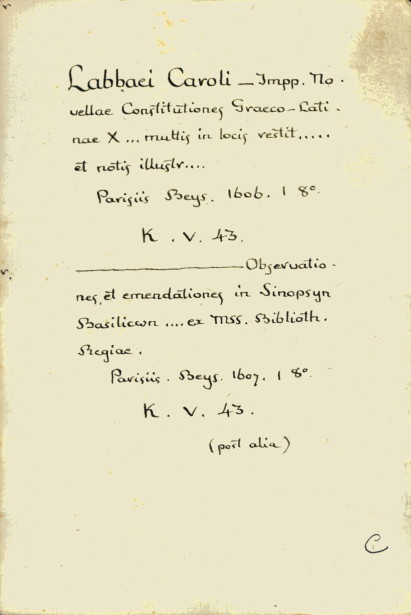 Labbaei Caroli — Impp. No-
vellae Constitutiones Graeco-Lati-
nae X ... multis in locis restit.....
et notis illustr....
Parisiis Beys. 1606. 1 8º.
K. V. 43.
———— Observatio-
nes et emendationes in Sinopsyn
Basilicωn .... ex MSS. Biblioth.
Regiae.
Parisiis. Beys. 1607. 1 8º.
K. V. 43.
(post alia)
C